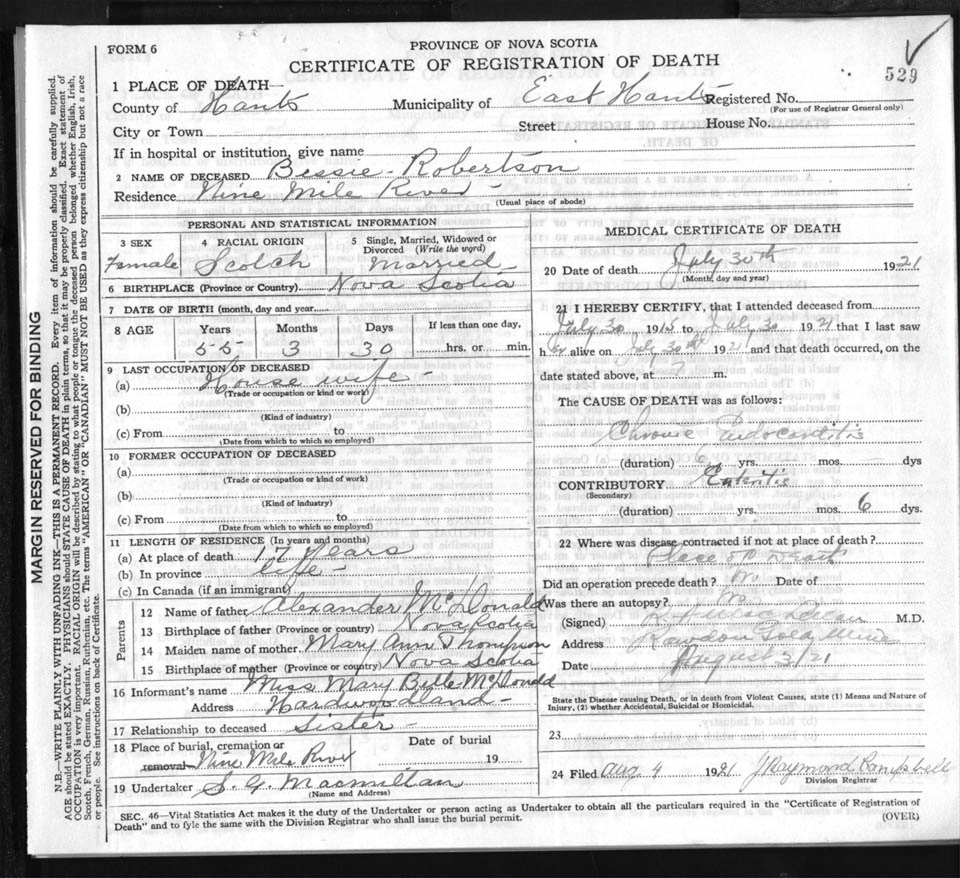 FORM 6
PROVINCE OF NOVA SCOTIA
CERTIFICATE OF REGISTRATION OF DEATH
529
1 PLACE OF DEATH—
County of Hants Municipality of East Hants Registered No.
(For use of Registrar General only)
City or Town Street House No.
If in hospital or institution, give name
2 NAME OF DECEASED Bessie Robertson
Residence Nine Mile River
(Usual place of abode)
PERSONAL AND STATISTICAL INFORMATION
3 SEX 4 RACIAL ORIGIN 5 Single, Married, Widowed or Divorced (Write the word)
Female Scotch Married
6 BIRTHPLACE (Province or Country) Nova Scotia
7 DATE OF BIRTH (month, day and year)
8 AGE Years Months Days If less than one day,
55 3 30 hrs. or min.
9 LAST OCCUPATION OF DECEASED
(a) House wife
(Trade or occupation or kind or work)
(b)
(Kind of industry)
(c) From to
(Date from which to which so employed)
10 FORMER OCCUPATION OF DECEASED
(a)
(Trade or occupation or kind of work)
(b)
(Kind of industry)
(c) From to
(Date from which to which so employed)
11 LENGTH OF RESIDENCE (In years and months)
(a) At place of death 17 years
(b) In province life
(c) In Canada (if an immigrant)
Parents
12 Name of father Alexander McDonald
13 Birthplace of father (Province or country) Nova Scotia
14 Maiden name of mother Mary Ann Thompson
15 Birthplace of mother (Province or country) Nova Scotia
16 Informant's name Miss Mary Belle McDonald
Address Hardwoodland
17 Relationship to deceased Sister
18 Place of burial, cremation or removal Nine Mile River Date of burial 19
19 Undertaker S. G. Macmillan
(Name and Address)
MEDICAL CERTIFICATE OF DEATH
20 Date of death July 30th 1921
(Month, day and year)
21 I HEREBY CERTIFY, that I attended deceased from
July 30 1915 to July 30 1921 that I last saw
her alive on July 30th 1921 and that death occurred, on the
date stated above, at 7 m.
The CAUSE OF DEATH was as follows:
Chronic Endocarditis
(duration) 6 yrs. mos. dys
CONTRIBUTORY Enteritis
(Secondary)
(duration) yrs. mos. 6 dys.
22 Where was disease contracted if not at place of death?
Place of Death
Did an operation precede death? No Date of
Was there an autopsy? No
(Signed) M.D.
Address Rawdon Gold Mines
Date August 3/21
State the Disease causing Death, or in death from Violent Causes, state (1) Means and Nature of
Injury, (2) whether Accidental, Suicidal or Homicidal.
23
24 Filed Aug 4 1921 J Raymond
Division Registrar
SEC. 46—Vital Statistics Act makes it the duty of the Undertaker or person acting as Undertaker to obtain all the particulars required in the "Certificate of Registration of
Death" and to fyle the same with the Division Registrar who shall issue the burial permit.
(OVER)
MARGIN RESERVED FOR BINDING
N.B.—WRITE PLAINLY WITH UNFADING INK—THIS IS A PERMANENT RECORD. Every item of information should be carefully supplied.
AGE should be stated EXACTLY. PHYSICIANS should STATE CAUSE OF DEATH in plain terms, so that it may be properly classified. Exact statement of
OCCUPATION is very important. RACIAL ORIGIN will be described by stating to what people or tongue the deceased person belonged whether English, Irish,
Scotch, French, German, Russian, Ruthenian, etc. The terms "AMERICAN" OR "CANADIAN" MUST NOT BE USED as they express citizenship but not a race
or people. See instructions on back of Certificate.